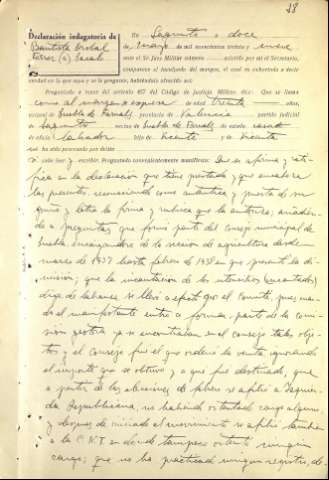 38
Declaración indagatoria de
Bautista Cristal
Ferrer (a) Casat
En Sagunto a doce
de mayo de mil novecientos treinta y nueve
ante el Sr Juez Militar asistido por mi el Secretario,
comparece el nombrado del margen, el cual es exhortado a decir
verdad en lo que sepa y se le pregunte, habiéndolo ofrecido así.
Preguntado a tenor del artículo 457 del Código de Justicia Militar, dice: Que se llama
como al margen se expresa de edad treinta años,
natural de Puebla de Farnals provincia de Valencia partido judicial
de Sagunto vecino de Puebla de Farnals de estado casado
de oficio labrador hijo de Vicente y de Vicenta
que ha sido procesado por delito
sabe leer y escribir. Preguntado convenientemente manifiesta: Que se afirma y rati-
fica en la declaración que tiene prestada y que encabeza
las presentes, reconociendo como auténtica y puesta de su
puño y letra la firma y rúbrica que la autoriza; añadien-
do a preguntas que formó parte del Consejo municipal de
Puebla encargándose de la sección de agricultura desde
marzo de 1937 hasta febrero de 1938 en que presentó la di-
misión; que la incautación de los
se llevó a efecto por el comité, pues cuan-
do el manifestante entró a formar parte de la comi-
sión gestora ya se encontraban en el consejo tales obje-
tos y el consejo fué el que ordenó la venta ignorando
el importe que se obtuvo y a que fue destinado; que
a partir de las elecciones de febrero se afilió a Izquier-
da Republicana, no habiendo ostentado cargo alguno,
y después de iniciado el movimiento se afilió también
a la C.N.T. en donde tampoco ostentó ningún
cargo; que no ha practicado ningún registro, de-